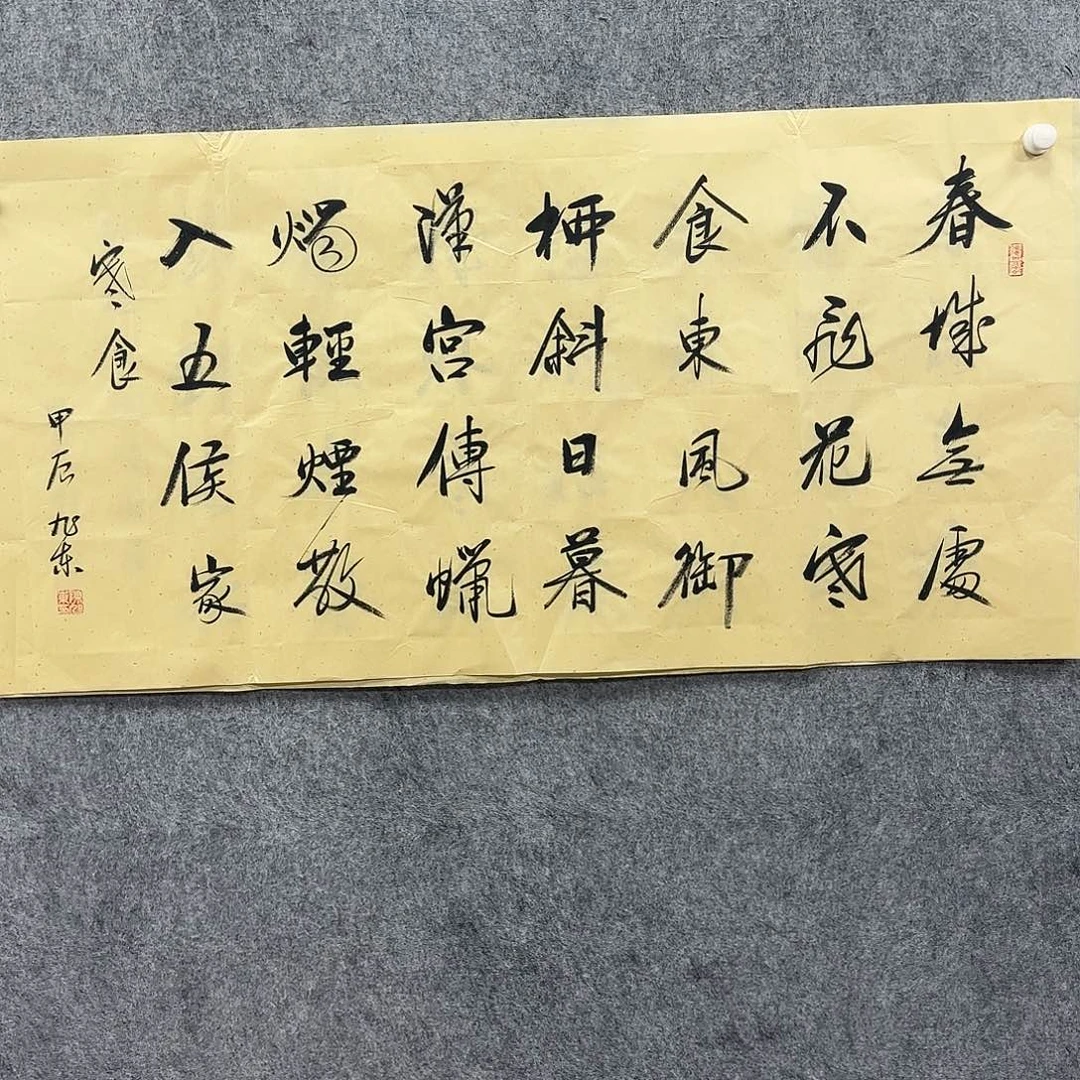 春城無處
不飛花寒
食東風御
柳斜日暮
漢宮傳蠟
燭輕煙散
入五侯家
寒食
甲辰旭東